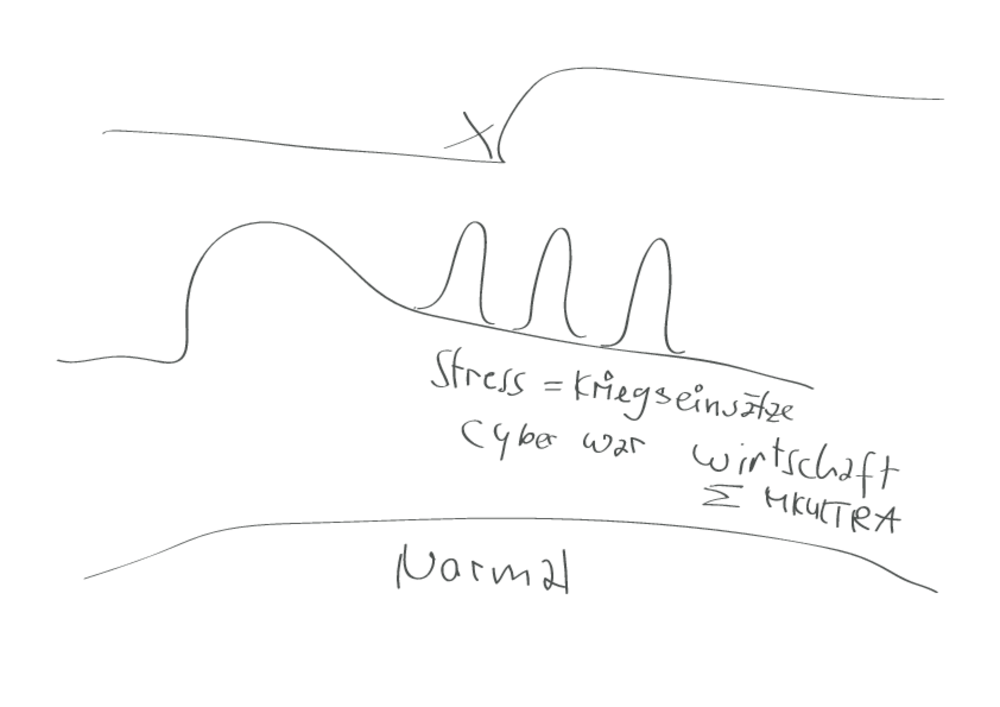 X
Stress = Kriegseinsätze
Cyber war Wirtschaft
Σ MKULTRA
Normal